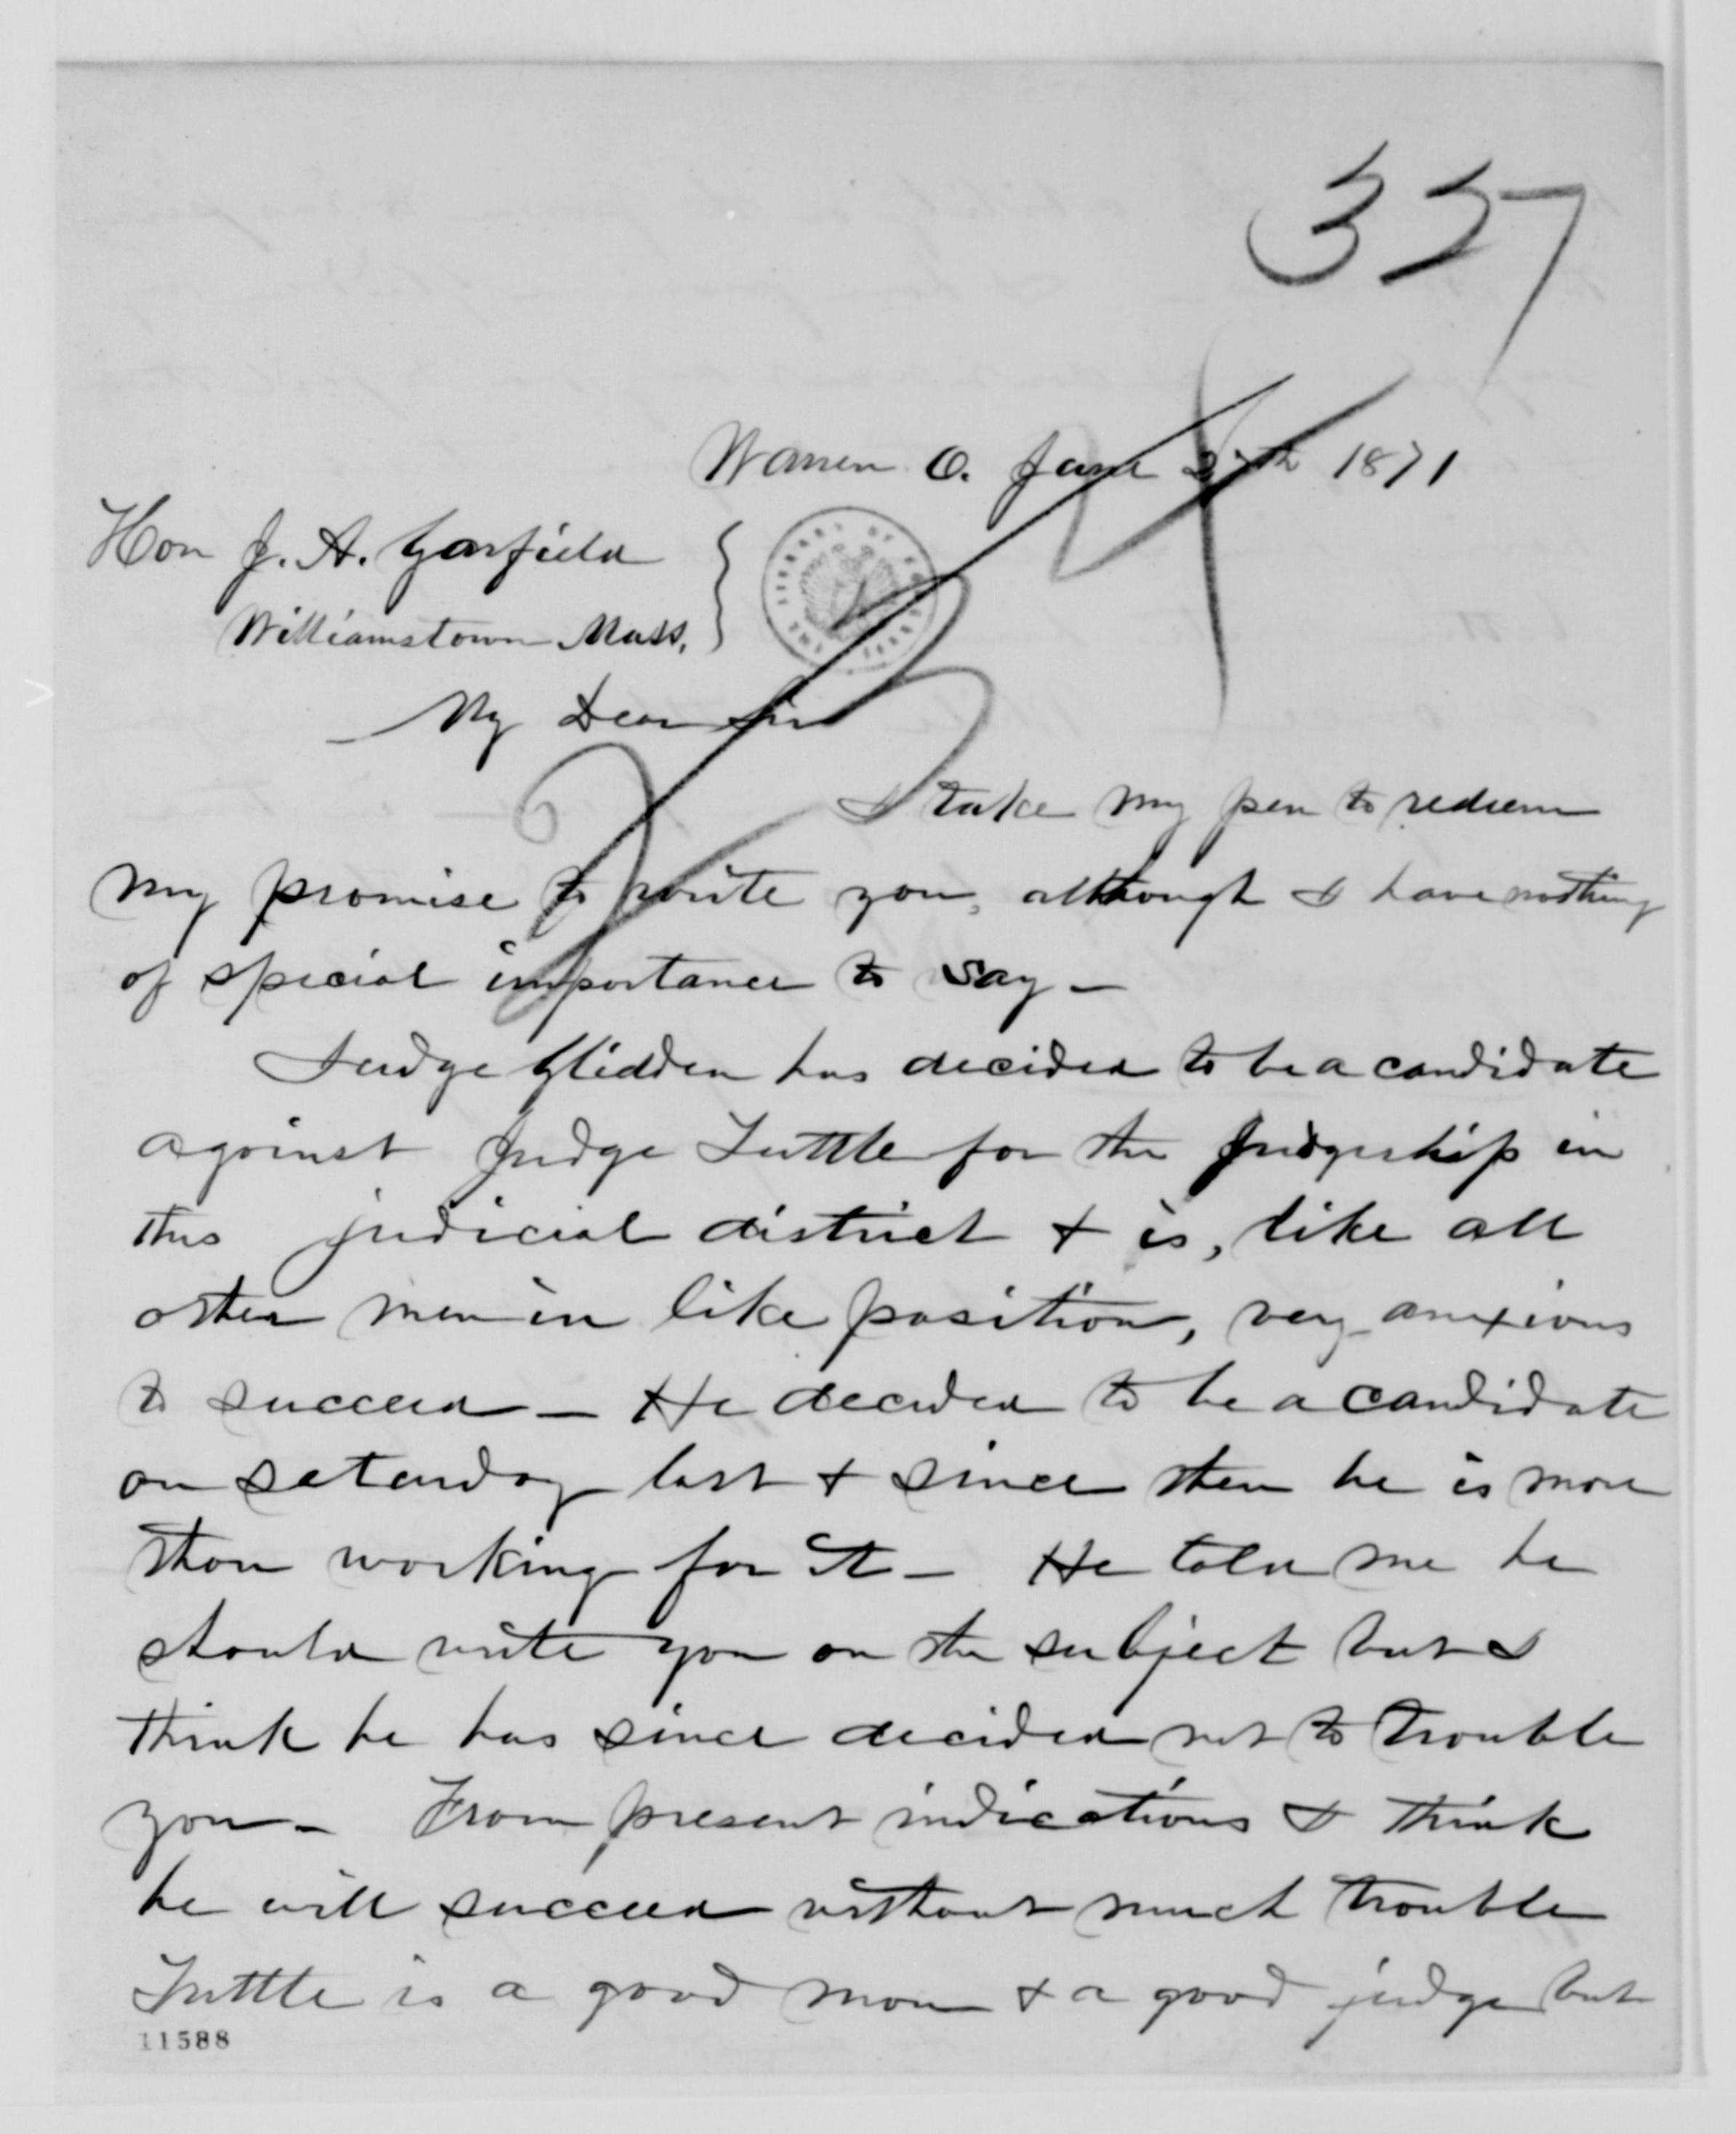 337
Warren O. June 27th 1871
Hon J. A. Garfield
Williamstown Mass.
My Dear Sir
I take my pen to redeem
my promise to write you, although I have nothing
of special importance to say -
Judge Glidden has decided to be a candidate
against Judge Tuttle for the Judgeship in
this judicial district & is, like all
other men in like position, very anxious
to succeed - He decided to be a candidate
on Saturday last & since then he is more
than working for it - He told me he
should write you on the subject but I
think he has since decided not to trouble
you - From present indications I think
he will succeed without much trouble
Tuttle is a good man & a good judge but
11588